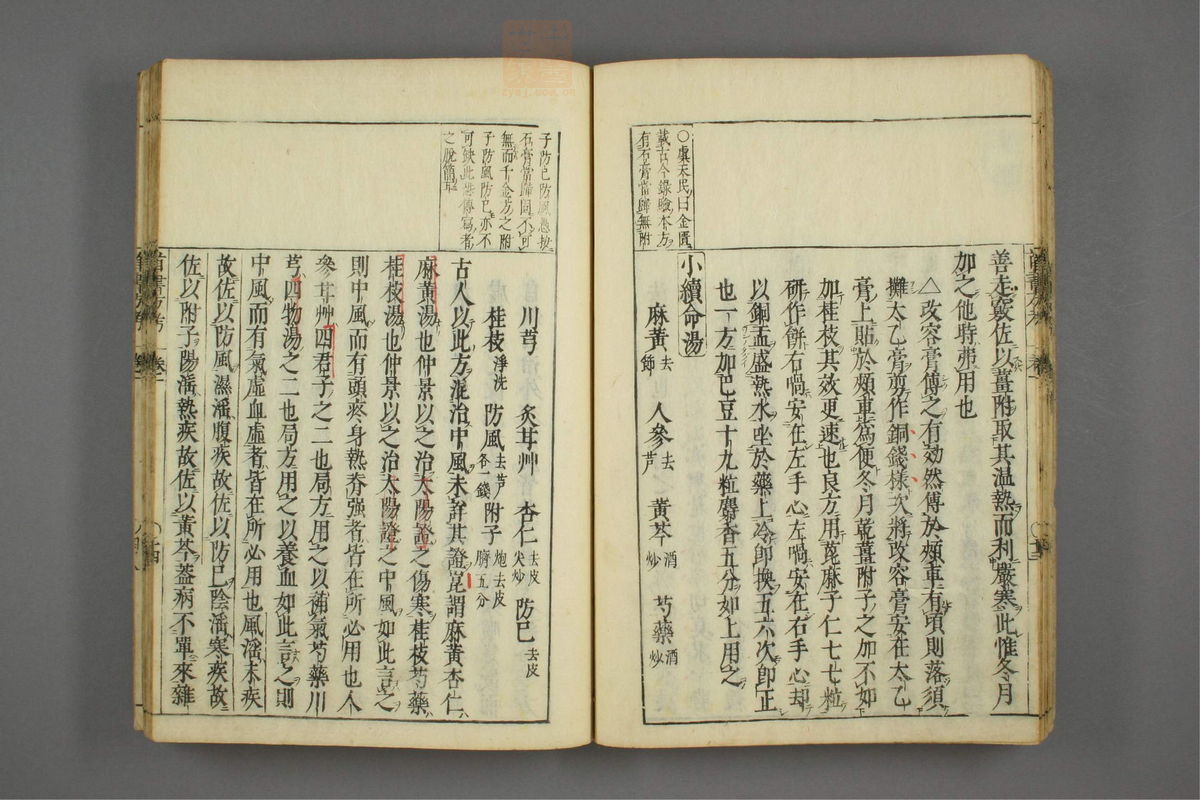 ○虞天民曰金匱
載古今錄驗本方
有石膏當歸無附
善走竅佐以薑附取其温熱而利嚴寒此惟冬月
加之他時弗用也
△改容膏傅之有効然傅於頰車有頃則落須
攤太乙膏剪作銅錢樣次將改容膏安在太乙
膏上貼於頰車爲便冬月乾薑附子之加不如
加桂枝其效更速也良方用萆麻子仁七七粒
研作餅右喎安在左手心左喎安在右手心却
以銅盂盛熱水坐於藥上冷卽換五六次卽正
也一方加巴豆十九粒麝香五分如上用之
小續命湯
麻黃去節 人參去芦 黃芩酒炒 芍藥酒炒
子防已防風愚按
石膏當歸固不可
無而千金方之附
子防風防已亦不
可缺此葢傳寫者
之脫簡耳
川芎 炙甘艸 杏仁去皮尖炒 防已去皮
桂枝淨洗 防風去芦各一錢 附子炮去皮臍五分
古人以此方混治中風未詳其證崑謂麻黃杏仁
麻黃湯也仲景以之治太陽證之傷寒桂枝芍藥
桂枝湯也仲景以之治太陽證之中風如此言之
則中風而有頭疼身熱脊強者皆在所必用也人
參甘艸四君子之二也局方用之以補氣芍藥川
芎四物湯之二也局方用之以養血如此言之則
中風而有氣虛血虛者皆在所必用也風滛末疾
故佐以防風濕滛腹疾故佐以防已陰滛寒疾故
佐以附子陽滛熱疾故佐以黃芩葢病不單來雜